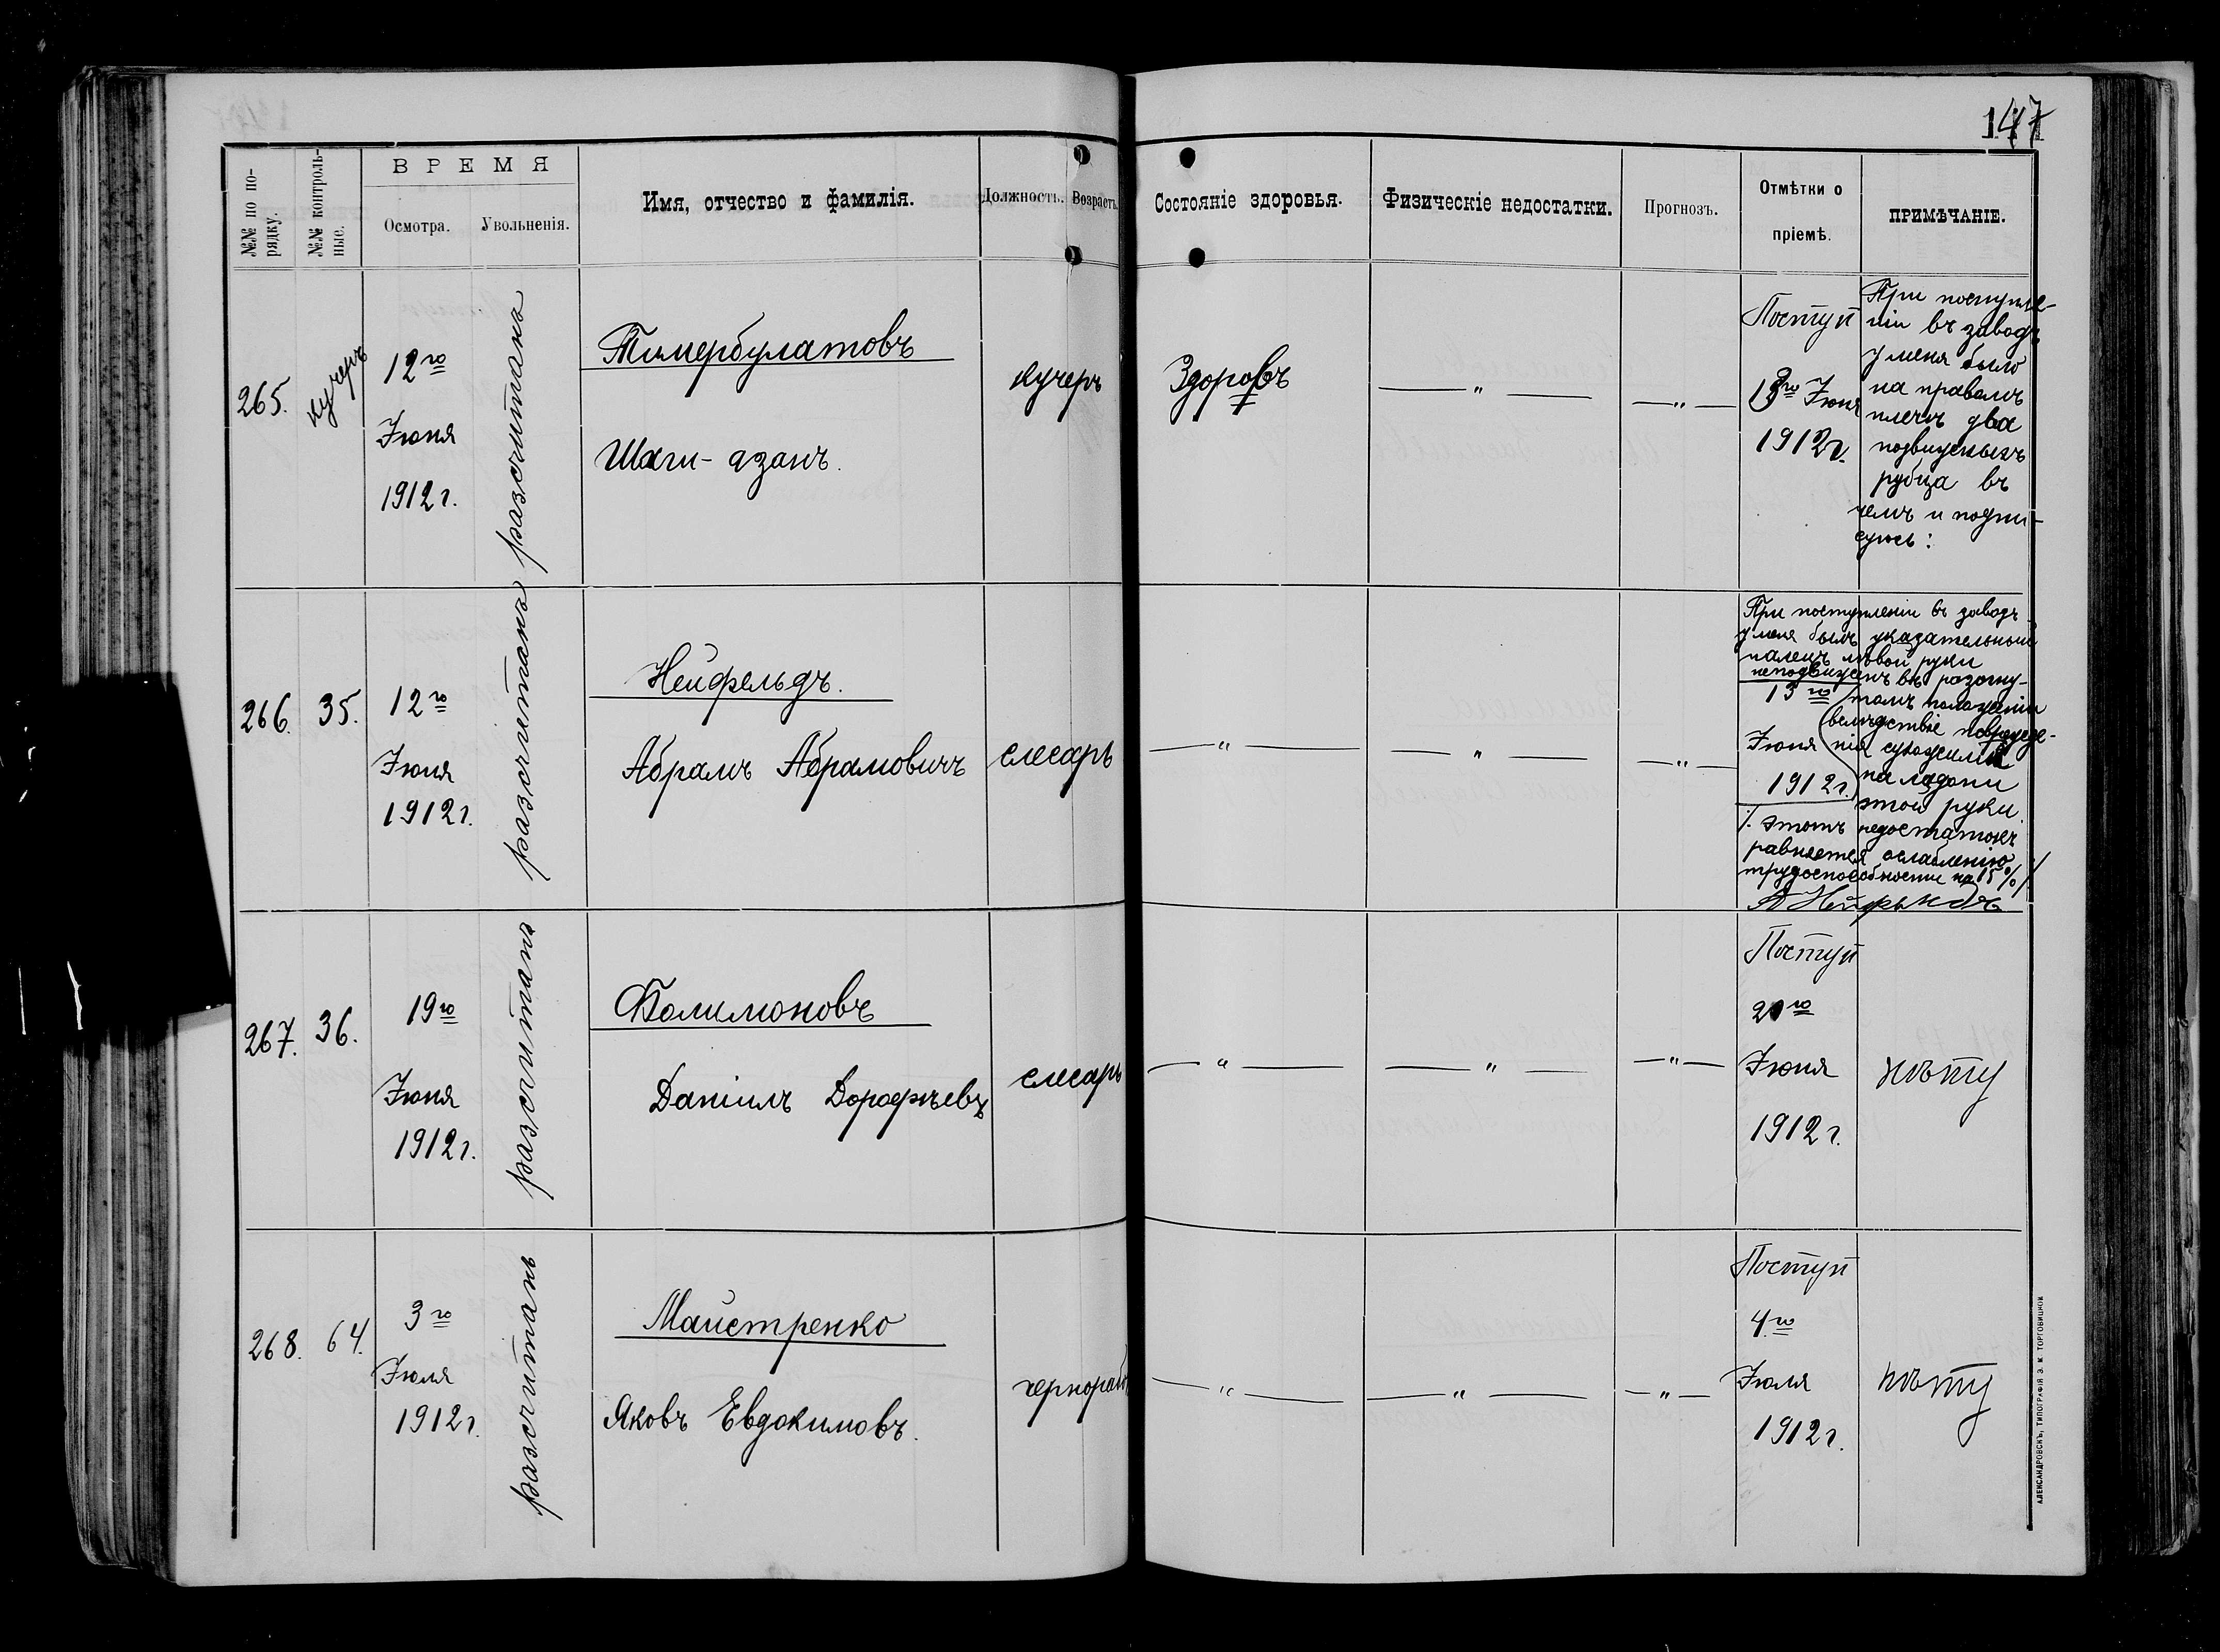 147
№№ по по-
рядку.
№№ контроль-
ные.
ВРЕМЯ
Осмотра.
Увольненія.
Имя, отчество и фамилія.
Должность.
Возрастъ.
Состояніе здоровья.
Физическіе недостатки.
Прогнозъ.
Отмѣтки о
пріемѣ.
ПРИМѢЧАНІЕ.
265.
кучеръ
12го
Іюня
1912 г.
разсчитанъ
Тимербулатовъ
Шаги-азанъ.
кучеръ
Здоровъ
— " —
— " —
Поступ
13го Іюня
1912 г.
При поступле-
ніи въ заводъ
у меня было
на правомъ
плечѣ два
подвижныхъ
рубца въ
чемъ и подпи-
суюсь:
266.
35.
12го
Іюня
1912 г.
разсчитанъ
Нейфельдъ.
Абрамъ Абрамовичъ
слесарь
— " —
— " —
— " —
13го
Іюня
1912 г.
При поступленіи въ заводъ
у меня былъ указательный
палецъ лѣвой руки
неподвиженъ въ разогну-
томъ положеніи
вслѣдствіе поврежде-
нія сухожилія
на ладони
этой руки
/. этотъ недостатокъ
равняется ослабленію
трудоспособности на 15% /.
А Нейфельдъ
267.
36.
19го
Іюня
1912 г.
разсчитанъ
Фолимоновъ
Даніилъ Дорофѣевъ
слесарь
— " —
— " —
— " —
Поступ
20го
Іюня
1912 г.
нѣту
268.
64.
3го
Іюля
1912 г.
разсчитанъ
Майстренко
Яковъ Евдокимовъ.
чернораб
— " —
— " —
— " —
Поступ
4го
Іюля
1912 г.
нѣту
АЛЕКСАНДРОВСКЪ, ТИПОГРАФІЯ Э. М. ТОРГОВИЦКОЙ